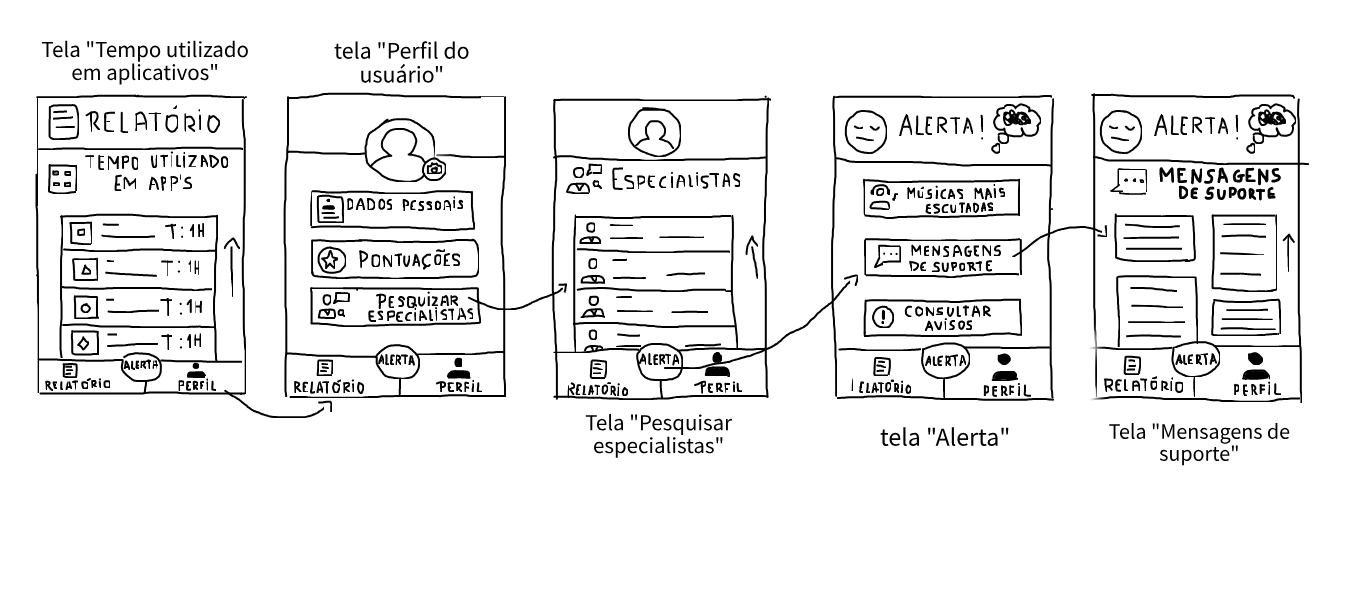 Tela "Tempo utilizado
em aplicativos"
RELATÓRIO
TEMPO UTILIZADO
EM APP'S
T:1H
T:1H
T:1H
T:1H
RELATÓRIO
ALERTA
PERFIL
tela "Perfil do
usuário"
DADOS PESSOAIS
PONTUAÇÕES
PESQUIZAR
ESPECIALISTAS
RELATÓRIO
ALERTA
PERFIL
ESPECIALISTAS
RELATÓRIO
ALERTA
PERFIL
Tela "Pesquisar
especialistas"
ALERTA!
MÚSICAS MAIS
ESCUTADAS
MENSAGENS
DE SUPORTE
CONSULTAR
AVISOS
RELATÓRIO
ALERTA
PERFIL
tela "Alerta"
ALERTA!
MENSAGENS
DE SUPORTE
RELATÓRIO
ALERTA
PERFIL
Tela "Mensagens de
suporte"